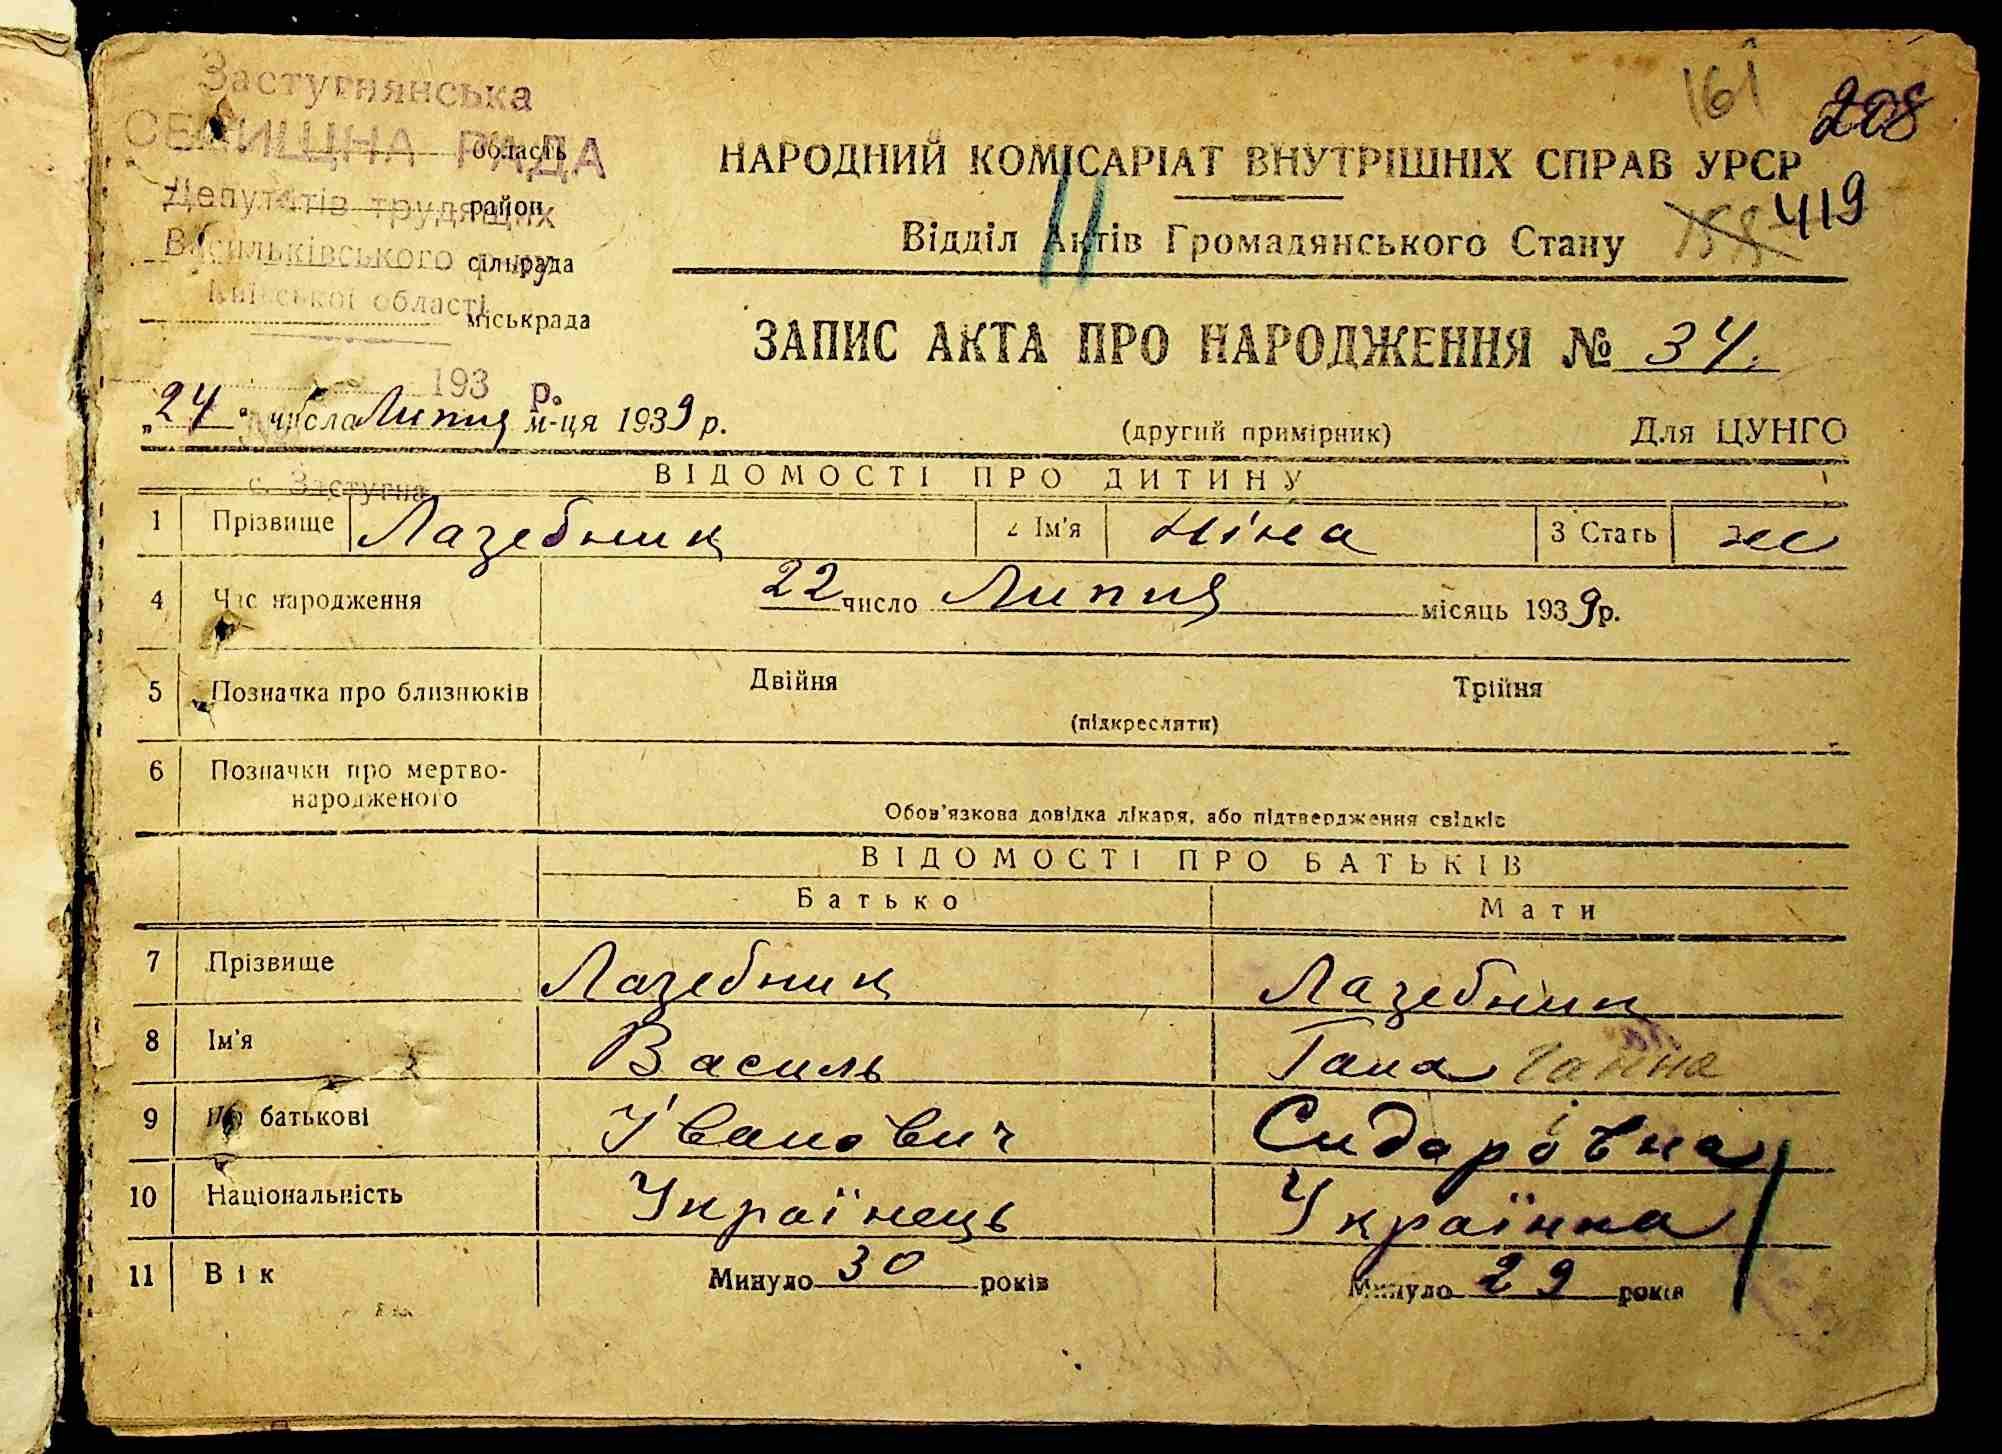 Застугнянська
СЕЛИЩНА РАДА
Депутатів трудящих
Васильківського р-ну
Київської області
193 р.
с. Застугна
область
район
сільрада
міськрада
161
208
419
158
НАРОДНИЙ КОМІСАРІАТ ВНУТРІШНІХ СПРАВ УРСР
Відділ Актів Громадянського Стану
ЗАПИС АКТА ПРО НАРОДЖЕННЯ № 34.
„24" числа Липня м-ця 1939 р.
(другий примірник) Для ЦУНГО
ВІДОМОСТІ ПРО ДИТИНУ
1 Прізвище Лазебник 2 Ім'я Ніна 3 Стать ж
4 Час народження 22 число Липня місяць 1939 р.
5 Позначка про близнюків Двійня Трійня
(підкреслити)
6 Позначки про мертво-
народженого
Обов'язкова довідка лікаря, або підтвердження свідків
ВІДОМОСТІ ПРО БАТЬКІВ
Батько Мати
7 Прізвище Лазебник Лазебник
8 Ім'я Василь Гана Ганна
9 По батькові Іванович Сидаровна
10 Національність Українець Українка
11 Вік Минуло 30 років Минуло 29 років